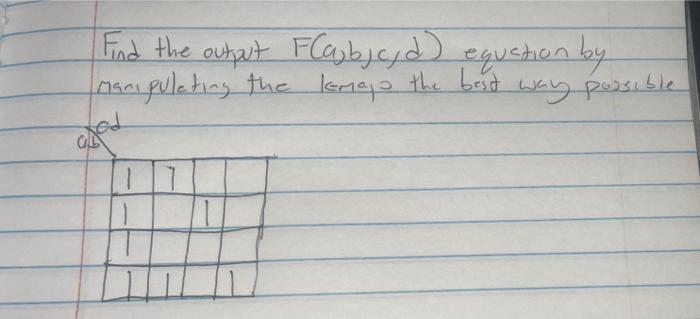 Find the output F(a,b,c,d) equation by
manipulating the kmap the best way possible
cd
ab
1 1
1 1
1
1 1 1